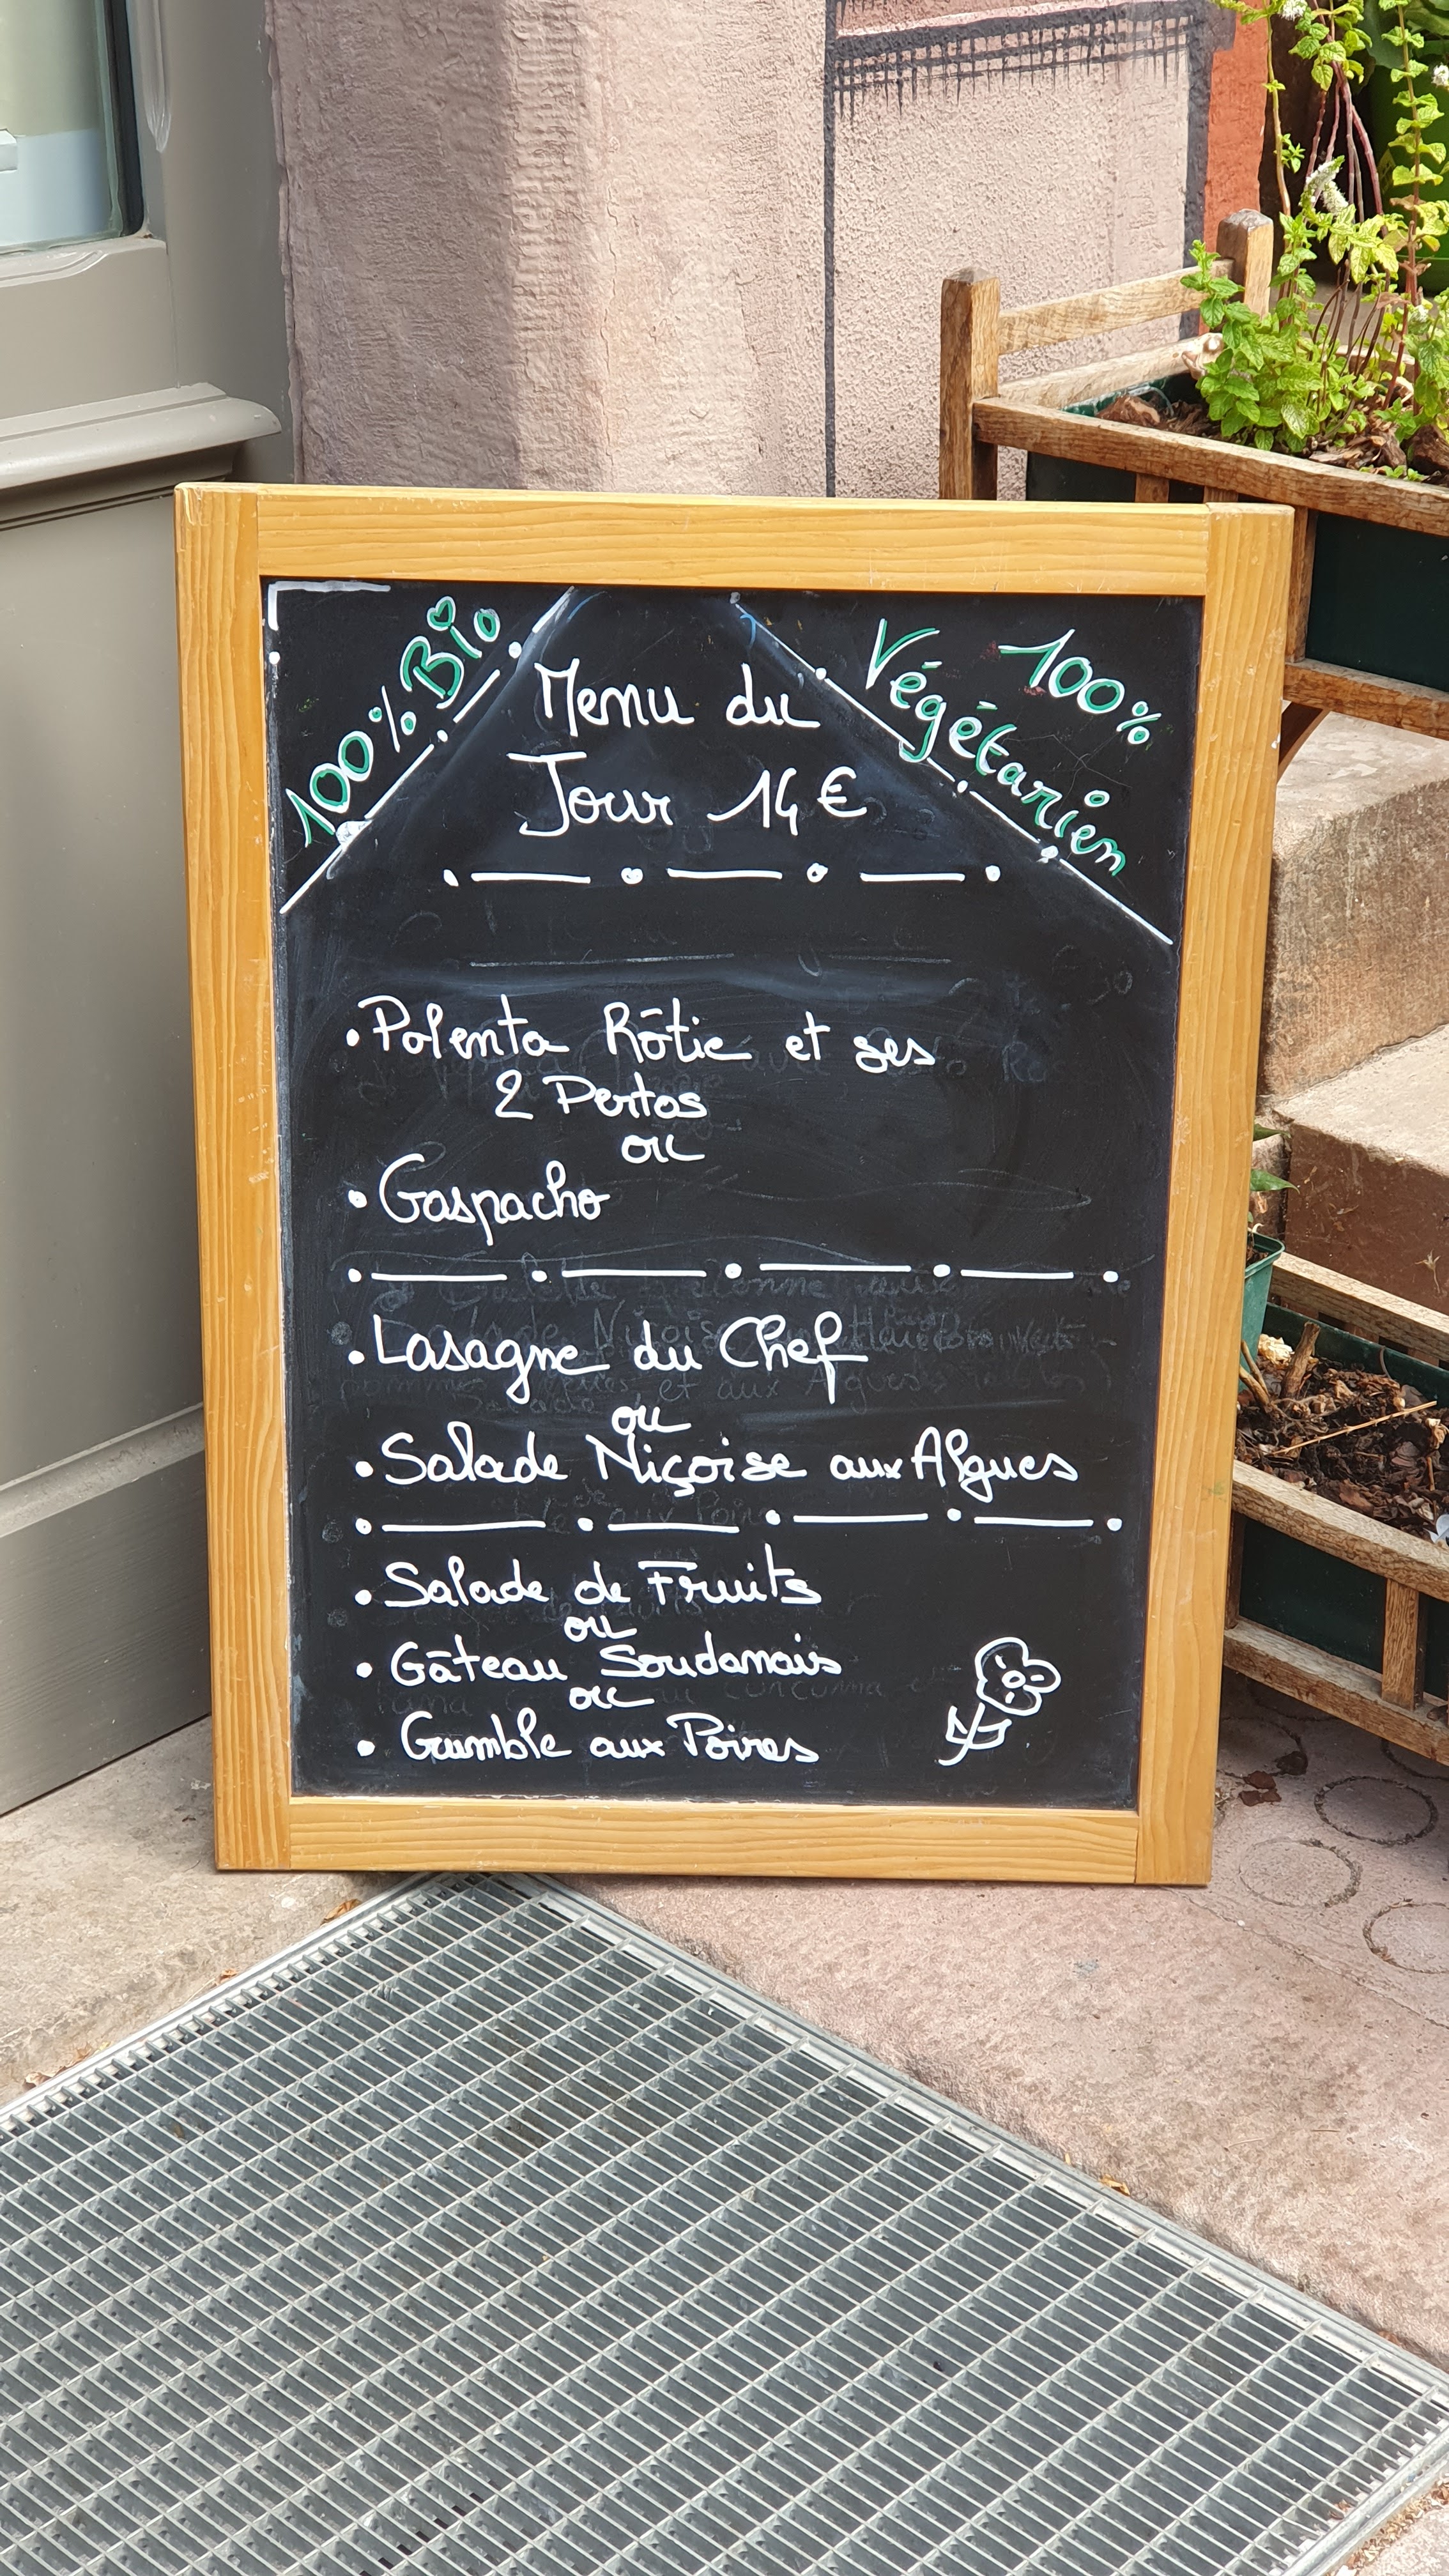 100% Bio
100%
Végétarien
Menu du
Jour 14 €
• Polenta Rôtie et ses
2 Pestos
ou
• Gaspacho
• Lasagne du Chef
ou
• Salade Niçoise aux Algues
• Salade de Fruits
ou
• Gâteau Soudanais
ou
• Crumble aux Poires